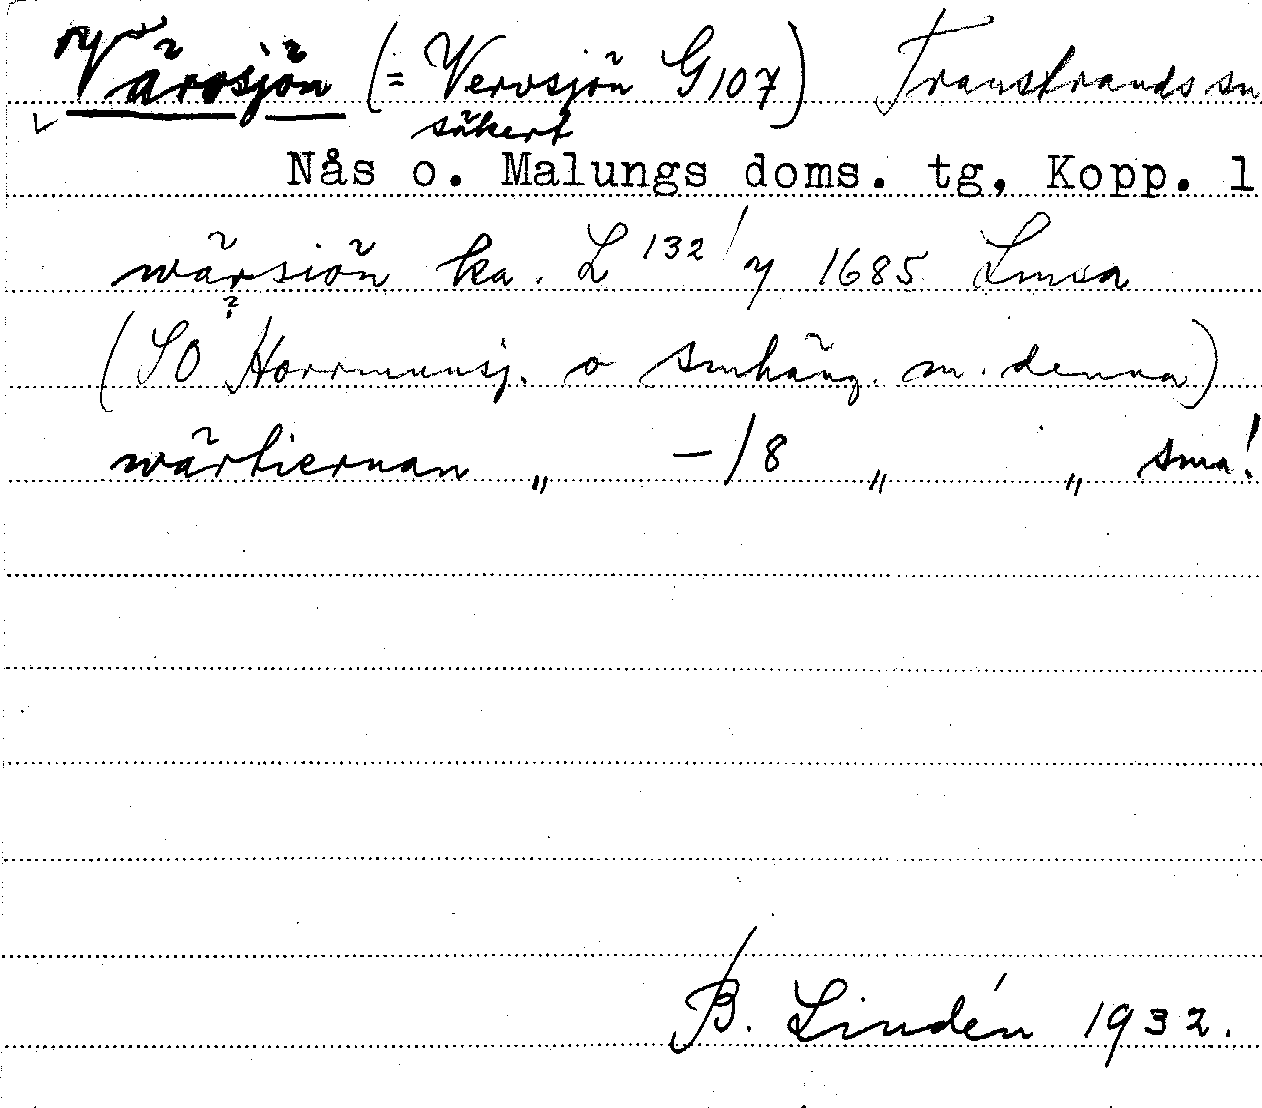 Värsjön (= Vervsjön G107) Transtrands sn
säkert
Nås o. Malungs doms. tg, Kopp. l
wärsiön ka. L 132 1/7 1685 Lmsa
(SO ? Horrmunsj. o smhäng. m. denna)
wärtiernan „ –/8 „ „ sma!
B. Lindén 1932.